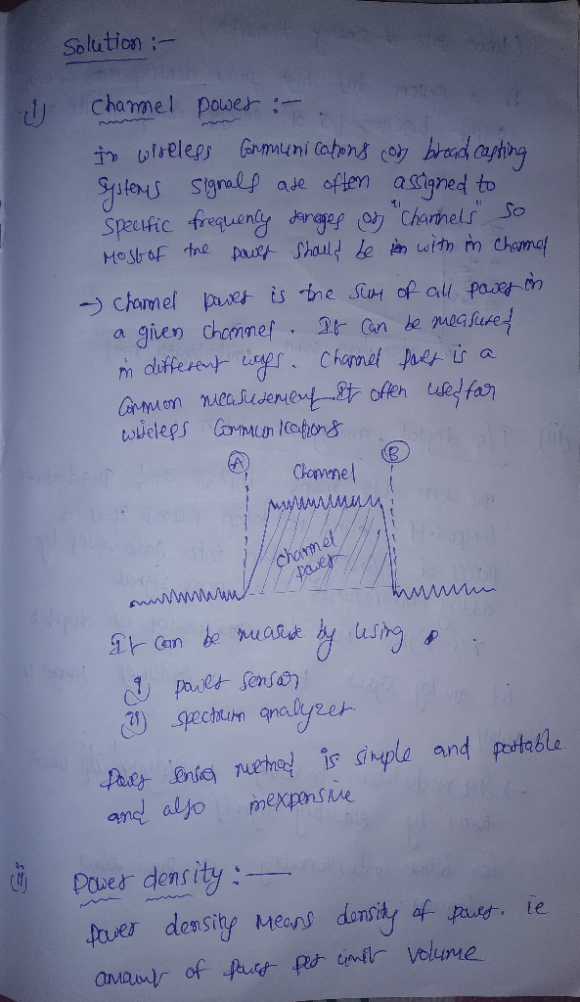 Solution :-
i) Channel power :-
in wireless Communications (or) broad casting
systems signals are often assigned to
specific frequency ranges (or) "Channels" so
Most of the power should be in with in channel
→ Channel power is the sum of all power in
a given channel. It can be measured
in different ways. Channel power is a
Common measurement It often used for
wireless Communications
A B
Channel
Channel
power
It can be measure by using
i) power sensor
ii) spectrum analyzer
Power sensor method is simple and portable
and also inexpensive
(ii) Power density :-
power density means density of power. ie
amount of power per unit volume